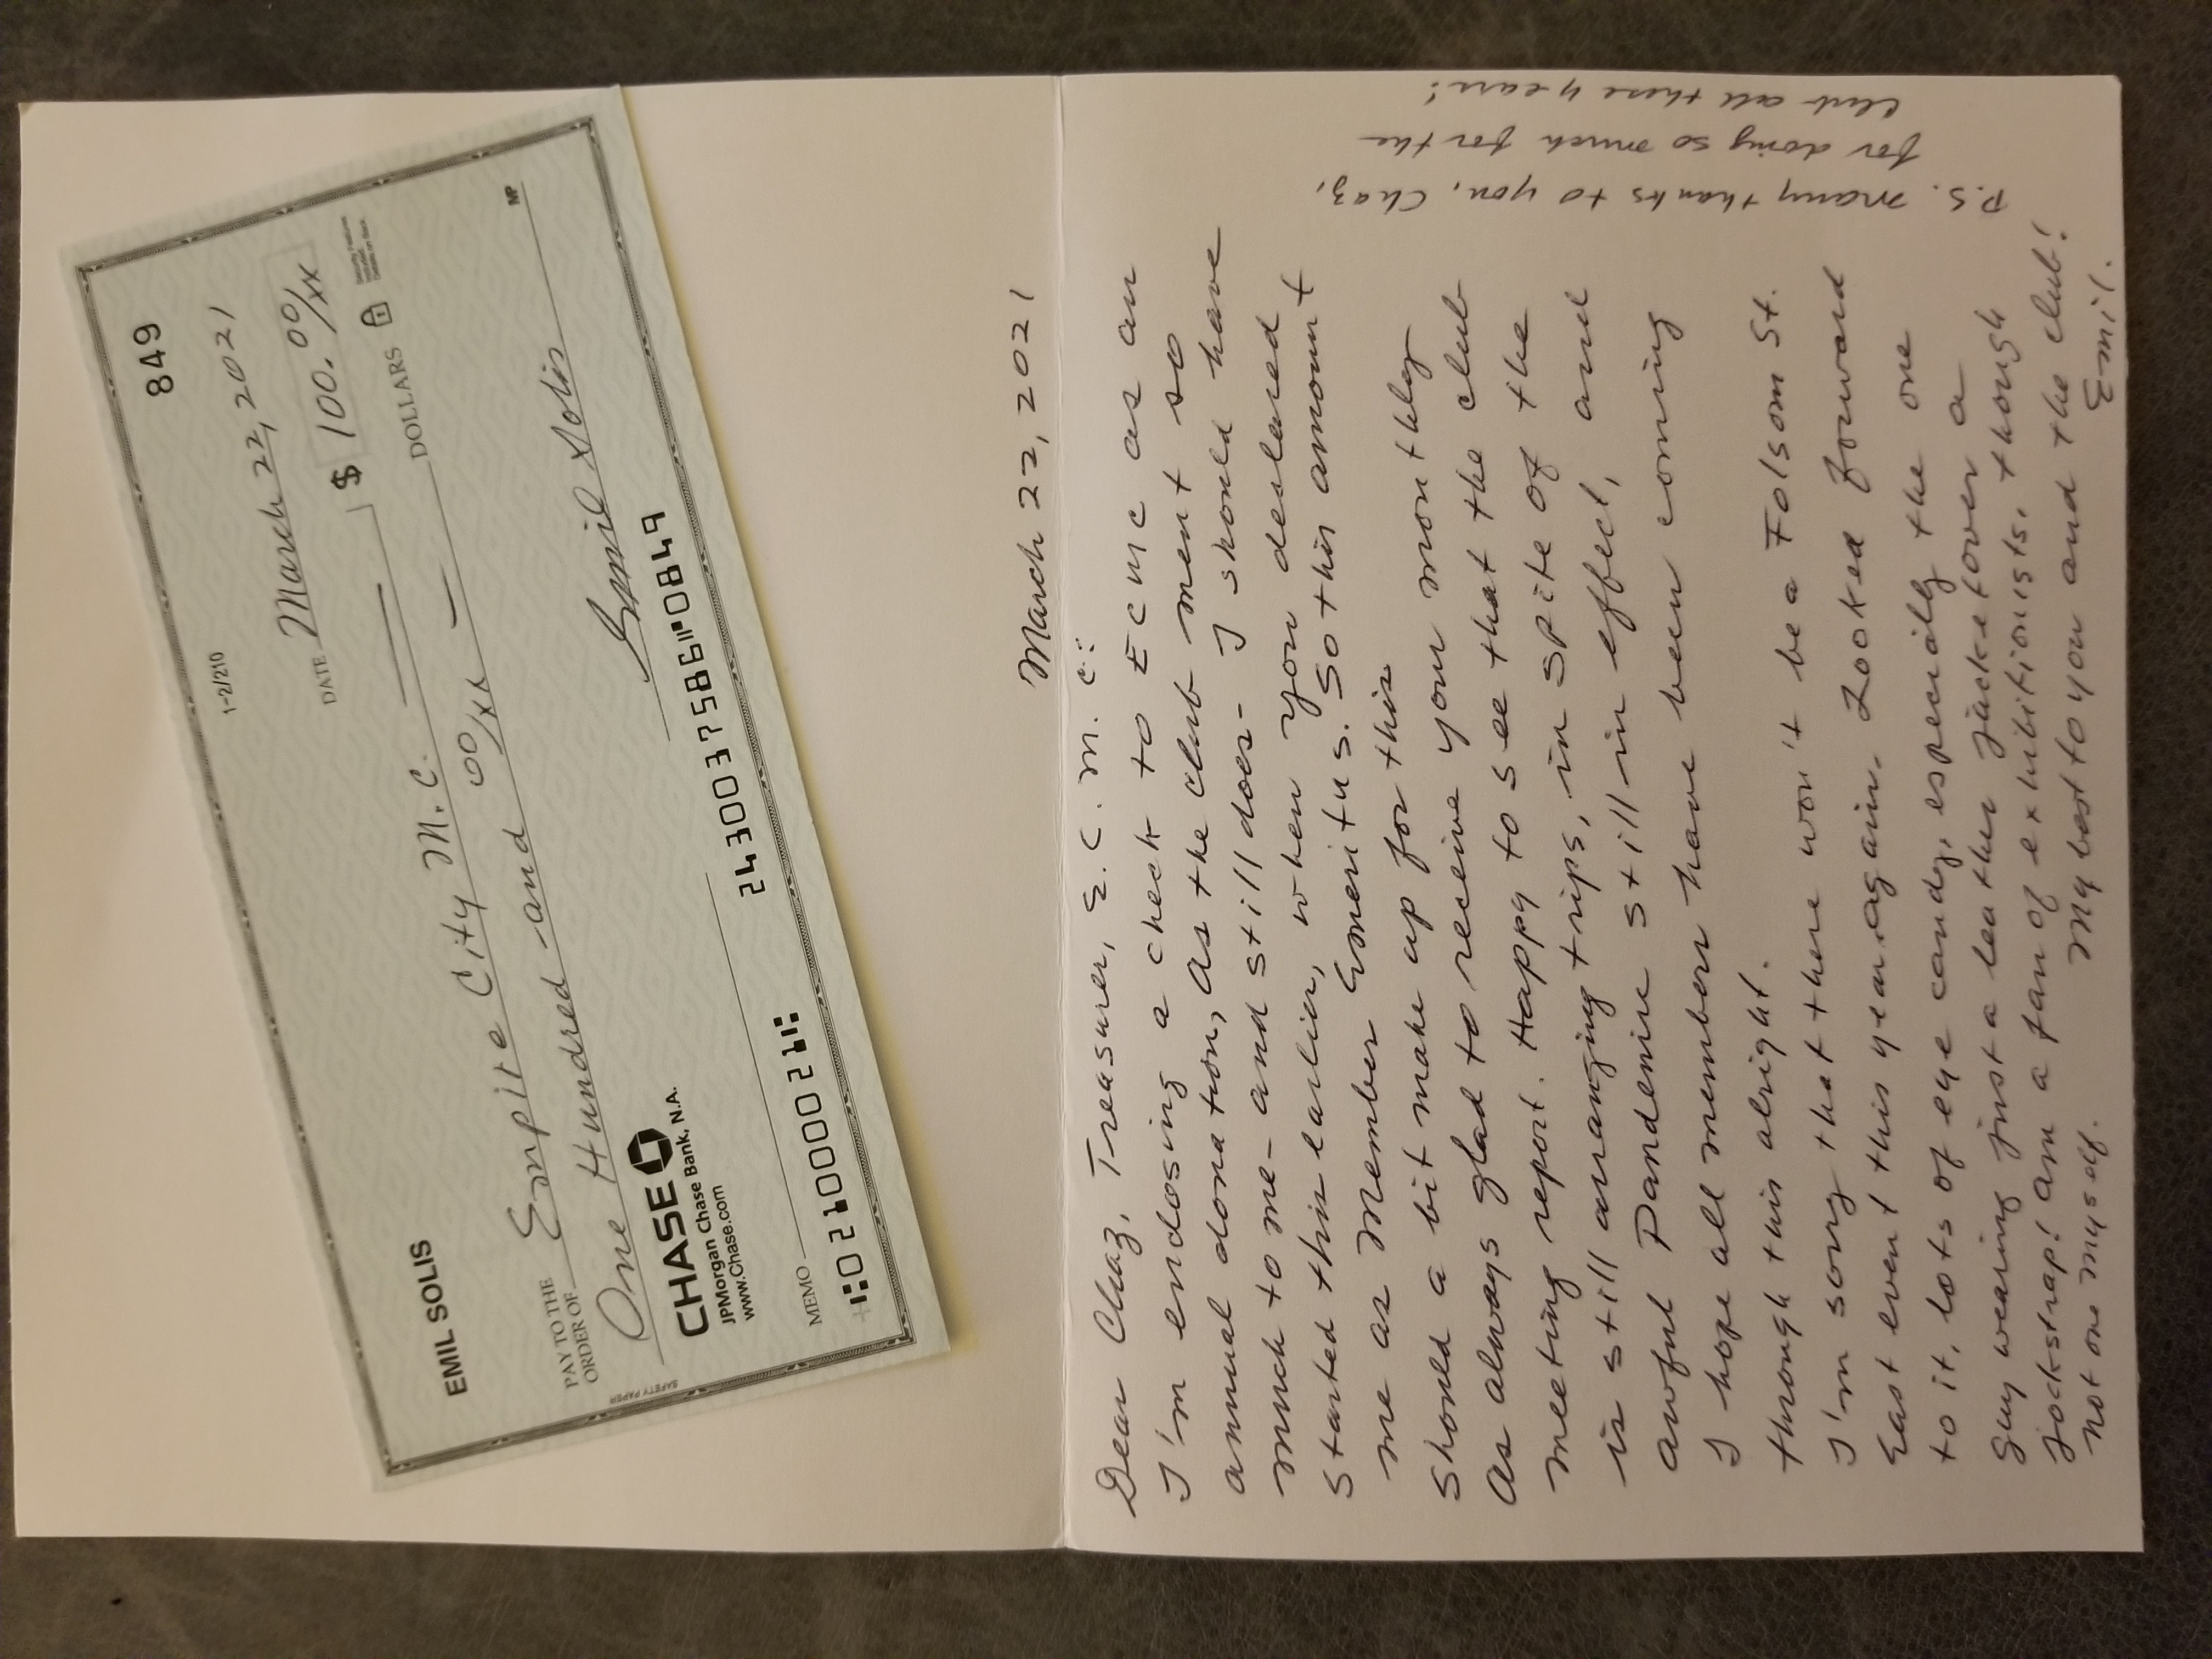 849
EMIL SOLIS
1-2/210
DATE March 22, 2021
PAY TO THE
ORDER OF Empire City M.C.
$ 100.00/xx
One Hundred and 00/xx DOLLARS
Security Features
Included.
Details on Back.
CHASE
JPMorgan Chase Bank, N.A.
www.Chase.com
MEMO
Emil Solis
MP
⑆021000021⑆ 243003758611⑈0849
SAFETY PAPER
March 22, 2021
Dear Chaz, Treasurer, E.C.M.C.:
I'm enclosing a check to ECMC as an
annual donation, as the club ment so
much to me - and still does - I should have
started this earlier, when you declared
me as Member Emeritus. So this amount
should a bit make up for this.
As always glad to receive your monthly
meeting report. Happy to see that the club
is still arranging trips, in spite of the
awful Pandemic still in effect, and
I hope all members have been coming
through this alright.
I'm sorry that there won't be a Folsom St.
East event this year again. Looked forward
to it, lots of eye candy, especially the one
guy wearing just a leather jacket over a
jockstrap! Am a fan of exhibitionists, though
not one myself. My best to you and the club!
Emil.
P.S. Many thanks to you, Chaz,
for doing so much for the
club all these years!